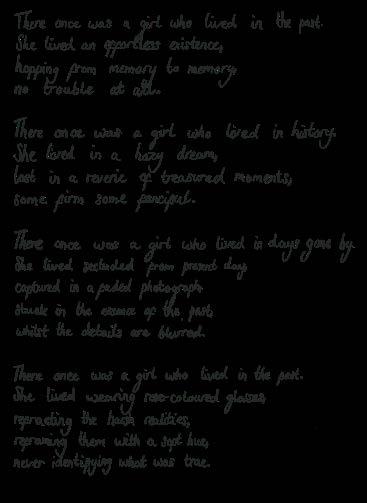 There once was a girl who lived in the past.
She lived an effortless existence,
hopping from memory to memory,
no trouble at all.
There once was a girl who lived in history.
She lived in a hazy dream,
lost in a reverie of treasured moments,
some firm some fanciful.
There once was a girl who lived in days gone by.
She lived secluded from present day,
captured in a faded photograph.
stuck in the essence of the past,
whilst the details are blurred.
There once was a girl who lived in the past.
She lived wearing rose-coloured glasses,
refracting the harsh realities,
reframing them with a soft hue,
never identifying what was true.